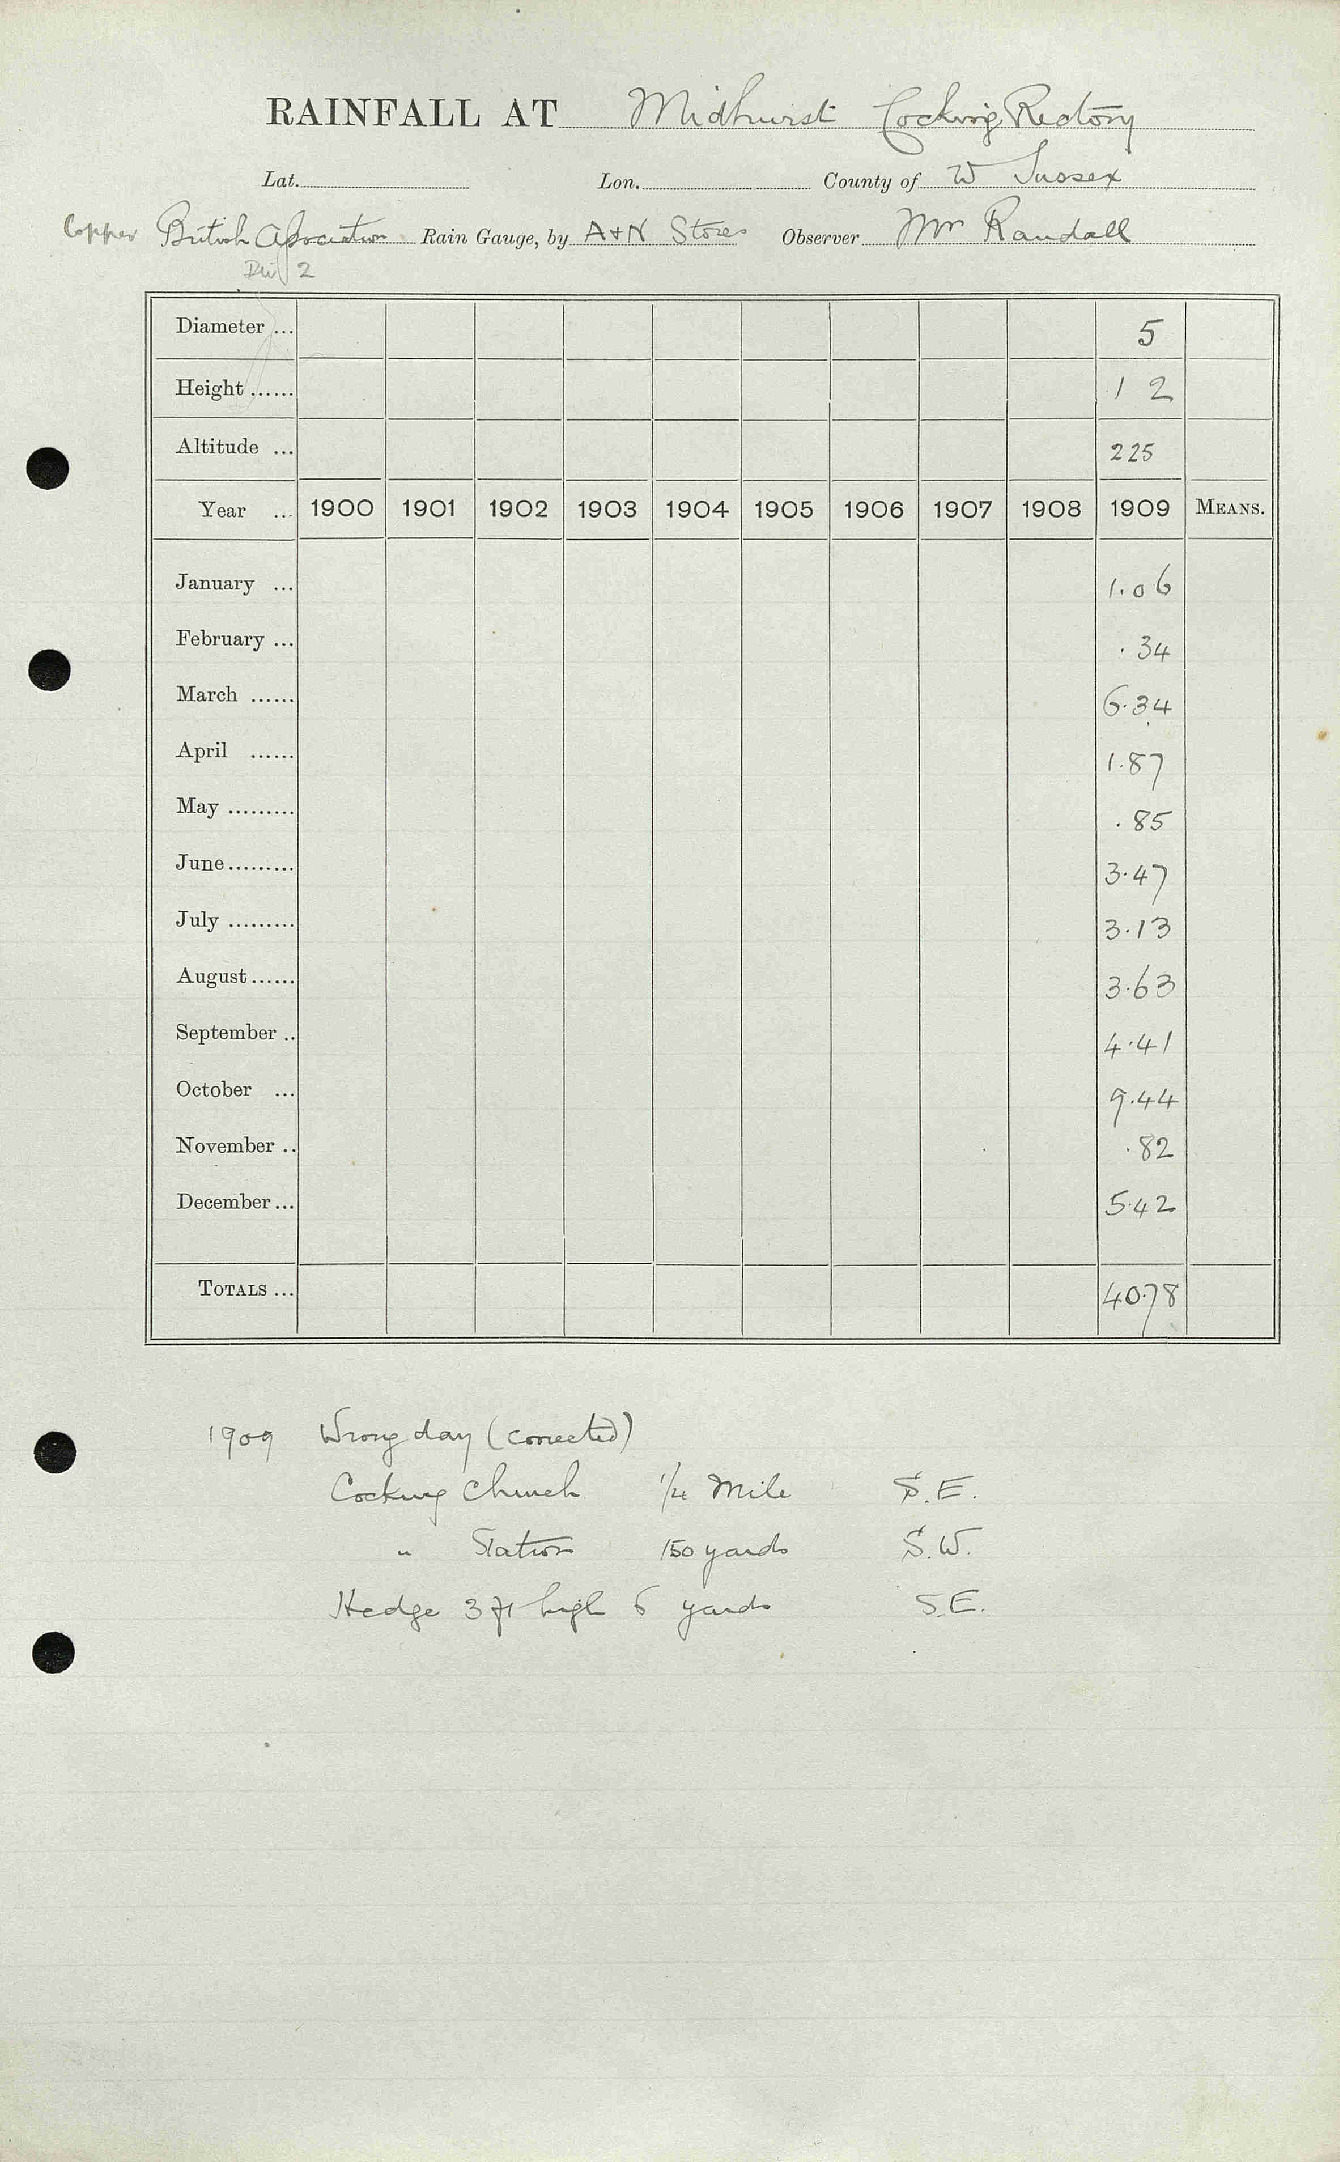 RAINFALL AT Midhurst Cocking Rectory
Lat. Lon. County of W Sussex
Copper British Association Rain Gauge, by A+N Stores Observer Mr Randall
Div 2
Diameter ... 5
Height ...... 1 2
Altitude ... 225
Year ... 1900 1901 1902 1903 1904 1905 1906 1907 1908 1909 MEANS.
January ... 1.06
February ... .34
March ...... 6.34
April ...... 1.87
May ......... .85
June ......... 3.47
July ......... 3.13
August ...... 3.63
September .. 4.41
October ... 9.44
November .. .82
December ... 5.42
TOTALS ... 40.78
1909 Wrong day (corrected)
Cocking Church 1/4 Mile S.E.
" Station 150 yards S.W.
Hedge 3 ft high 6 yards S.E.